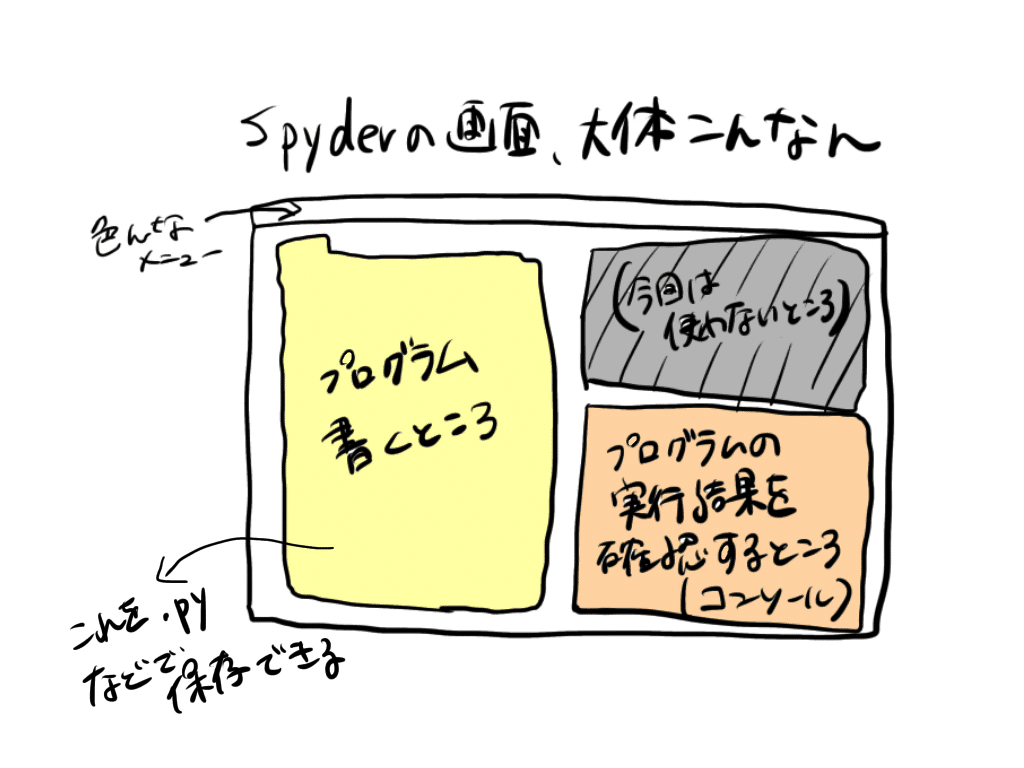 Spyderの画面、大体こんなん
色んな
メニュー
プログラム
書くところ
(今回は
使わないところ)
プログラムの
実行結果を
確認するところ
(コンソール)
これを.py
などで保存できる